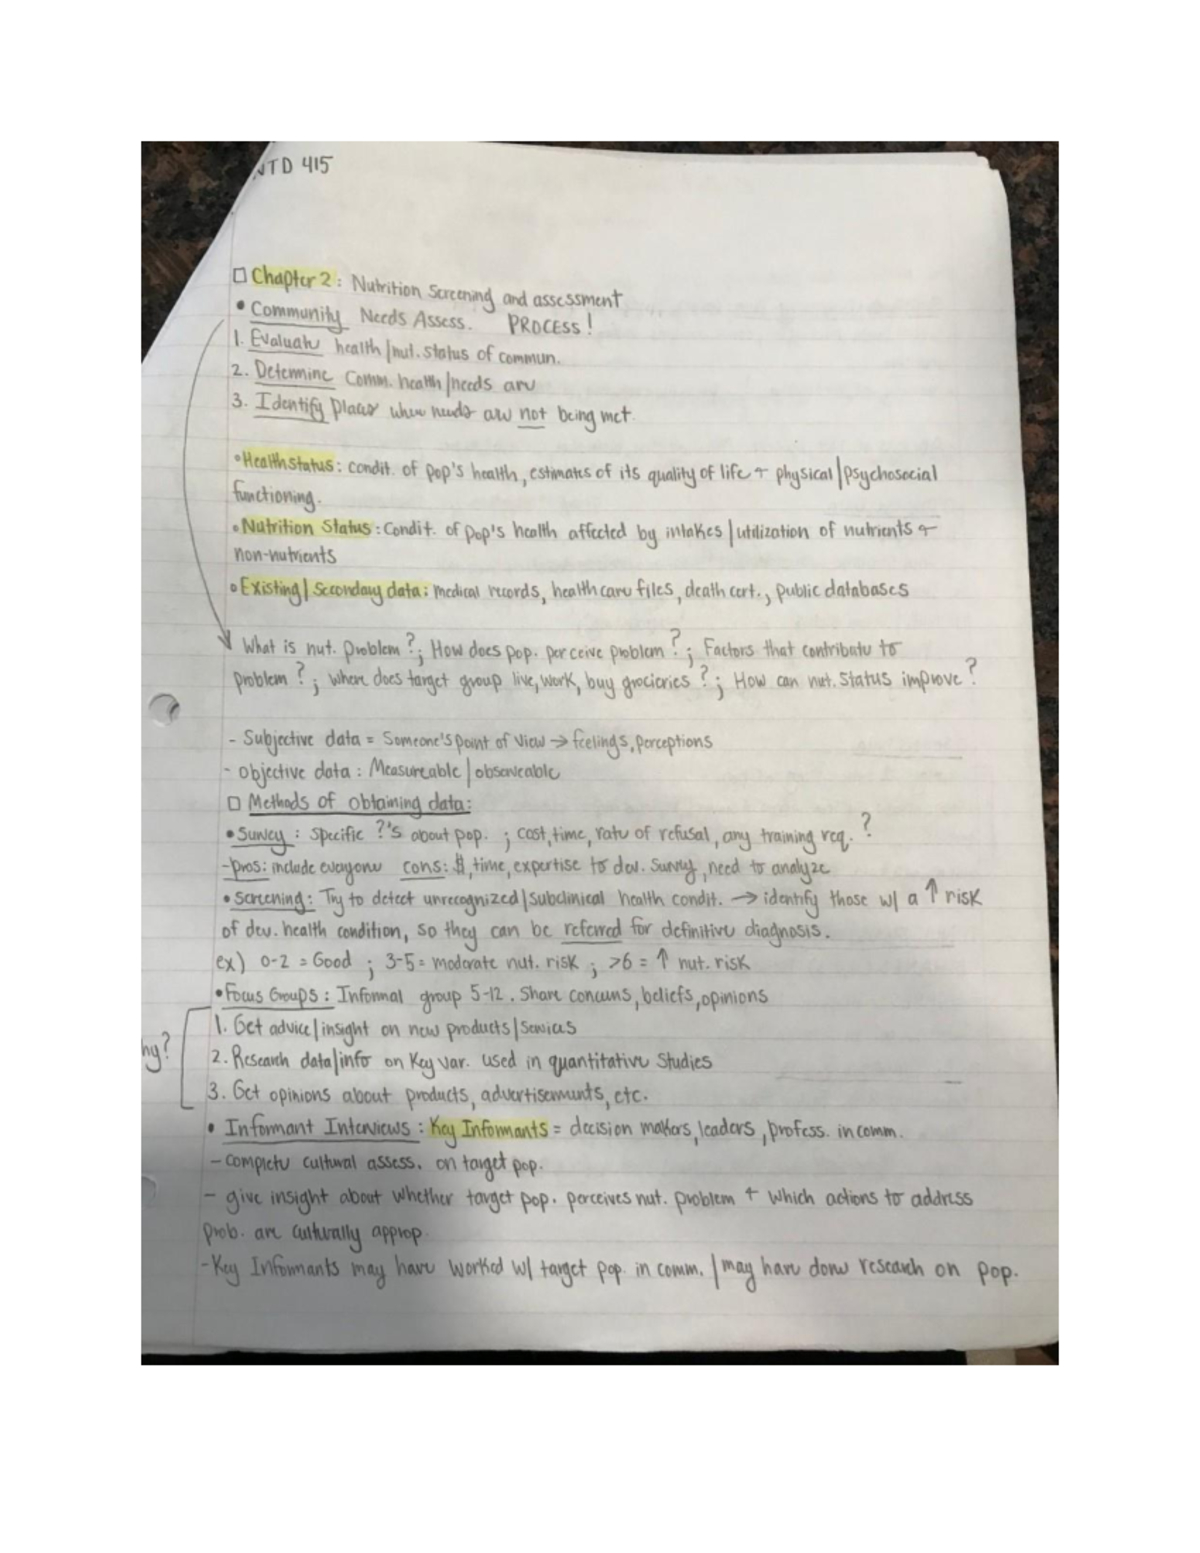 NTD 415
□ Chapter 2: Nutrition Screening and assessment
• Community Needs Assess. PROCESS!
1. Evaluate health/nut. status of commun.
2. Determine Comm. health/needs are
3. Identify places where needs are not being met.
• Health status: condit. of pop's health, estimates of its quality of life + physical/psychosocial
functioning.
• Nutrition Status: Condit. of pop's health affected by intakes/utilization of nutrients +
non-nutrients
• Existing/Secondary data: medical records, healthcare files, death cert., public databases
What is nut. problem?; How does pop. perceive problem?; Factors that contribute to
problem?; where does target group live, work, buy grocieries?; How can nut. status improve?
- Subjective data = Someone's point of view → feelings, perceptions
- objective data: Measureable/observeable
□ Methods of obtaining data:
• Survey: specific ?'s about pop. ; cost, time, rate of refusal, any training req.?
- pros: include everyone cons: $, time, expertise to dev. survey, need to analyze
• Screening: Try to detect unrecognized/subclinical health condit. → identify those w/ a ↑ risk
of dev. health condition, so they can be referred for definitive diagnosis.
ex) 0-2 = Good ; 3-5 = moderate nut. risk ; >6 = ↑ nut. risk
• Focus Groups: Informal group 5-12. Share concerns, beliefs, opinions
1. Get advice/insight on new products/services
hy? 2. Research data/info on Key var. used in quantitative studies
3. Get opinions about products, advertisements, etc.
• Informant Interviews: Key Informants = decision makers, leaders, profess. in comm.
- complete cultural assess. on target pop.
- give insight about whether target pop. perceives nut. problem + which actions to address
prob. are culturally approp.
- Key Informants may have worked w/ target pop. in comm. / may have done research on pop.